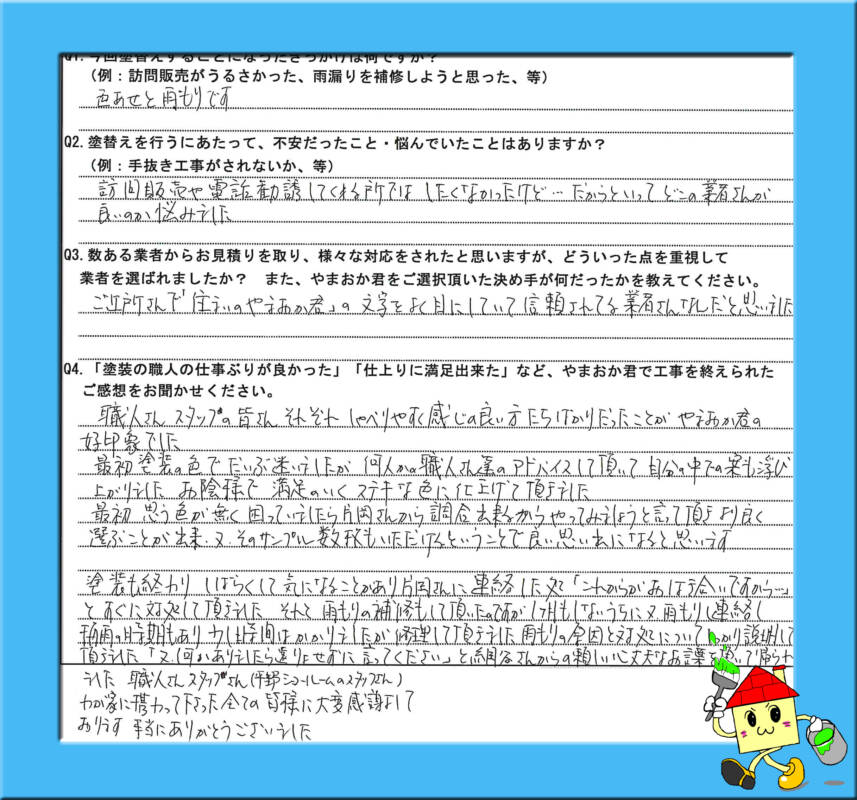 Q1. 今回塗替えすることになったきっかけは何ですか？
（例：訪問販売がうるさかった、雨漏りを補修しようと思った、等）
色あせと雨もりです
Q2. 塗替えを行うにあたって、不安だったこと・悩んでいたことはありますか？
（例：手抜き工事がされないか、等）
訪問販売や電話勧誘してくる所ではしたくなかったけど…だからといってどこの業者さんが
良いのか悩みました
Q3. 数ある業者からお見積りを取り、様々な対応をされたと思いますが、どういった点を重視して
業者を選ばれましたか？　また、やまおか君をご選択頂いた決め手が何だったかを教えてください。
ご近所さんで「住まいのやまおか君」の文字をよく目にしていて信頼されてる業者さんなんだと思いました
Q4.「塗装の職人の仕事ぶりが良かった」「仕上りに満足出来た」など、やまおか君で工事を終えられた
ご感想をお聞かせください。
職人さんスタッフの皆さんそれぞれしゃべりやすく感じの良い方たちばかりだったことがやまおか君の
好印象でした
最初塗装の色でだいぶ迷いましたが何人かの職人さん達のアドバイスして頂いて自分の中での案も浮び
上がりました お陰様で満足のいくステキな色に仕上げて頂きました
最初思う色が無く困っていましたら片岡さんから調合出来るからやってみましょうと言って頂きより良く
選ぶことが出来、又、そのサンプル数枚もいただけるということで良い思い出になると思います
塗装も終わりしばらくして気になることがあり片岡さんに連絡した処「これからがお付き合いですから…」
とすぐに対処して頂きました それと雨もりの補修もして頂いたのですが1ヶ月もしないうちに又雨もりし連絡し
梅雨の時期もあり少し時間はかかりましたが修理して頂きました 雨もりの原因と対処についてしっかり説明して
頂きました「又、何かありましたら遠りょせずに言ってください」と細るさんからの頼しい心丈夫なお言葉を 帰られ
ました 職人さんスタッフさん（平野ショールームのスタッフさん）
わが家に携わって下さった全ての皆様に大変感謝して
おります 本当にありがとうございました